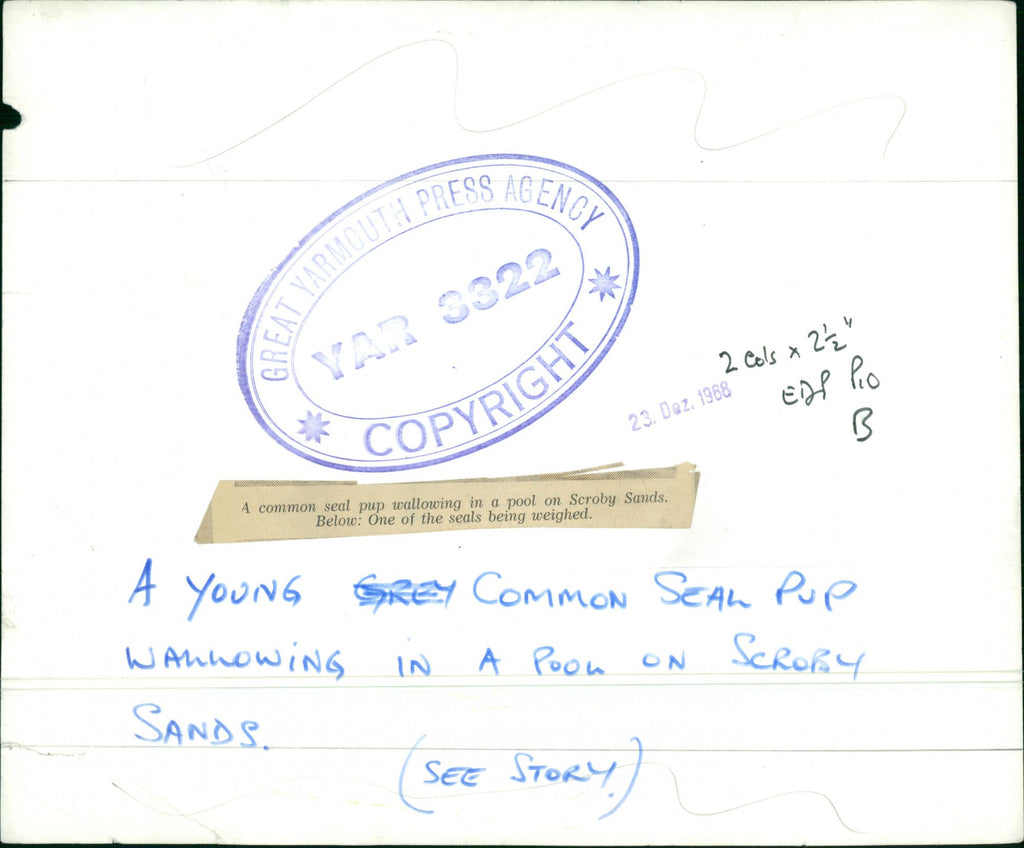 GREAT YARMOUTH PRESS AGENCY
YAR 3322
COPYRIGHT
2 cols x 2½"
EDP P10
B
23. Dez. 1968
A common seal pup wallowing in a pool on Scroby Sands.
Below: One of the seals being weighed.
A YOUNG GREY COMMON SEAL PUP
WALLOWING IN A POOL ON SCROBY
SANDS.
(SEE STORY.)